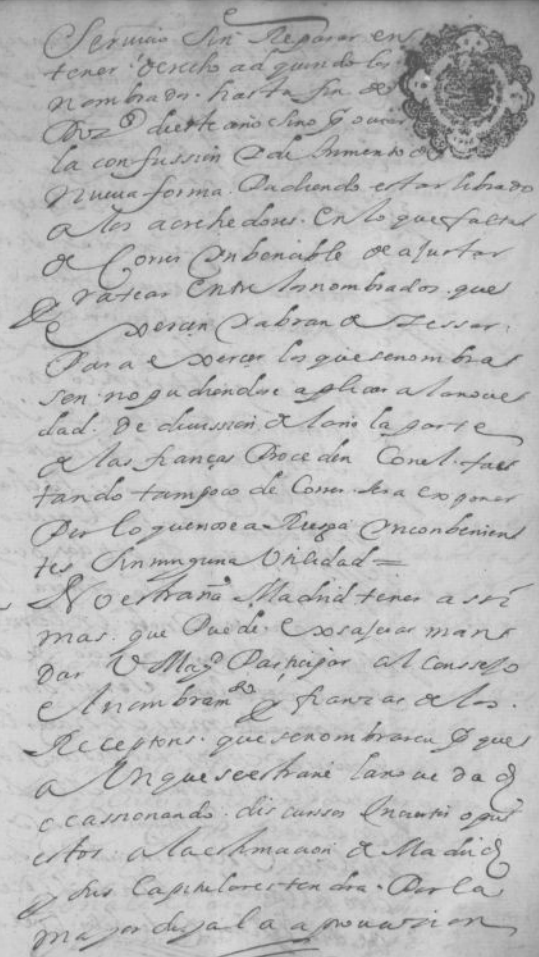 Servicio sin Reparar en
tener derecho adquirido los
nombrados hasta fin de
Dizre deste año sino
la confussion
nueva forma. Pudiendo estar librado
a los acrehedores. en lo que falta
de Correr Ynbeniable de ajustar
y ratear entre los nombrados que
exercen y abran de zessar
Para exercer los que senombras
sen no pudiendose aplicar a lanove
dad. de division de laño la parte
de las fianças Procedan Con el. fal
tando tampoco de Correr. sera exponer
Por lo que Ynconbenien
tes sin ninguna Utilidad =
No estraña Madrid tener a su
mas. que Puede. man
dar V Magd Participar al Conssejo
el nombramto y fianzas de los
Receptores. que senombraren que
a Unque se estrañe la novedad
occassionando. discurssos opu
estos. a la estimacion de Madrid
y sus Capitulares tendra. Por la
mayor dicha la aprovacion